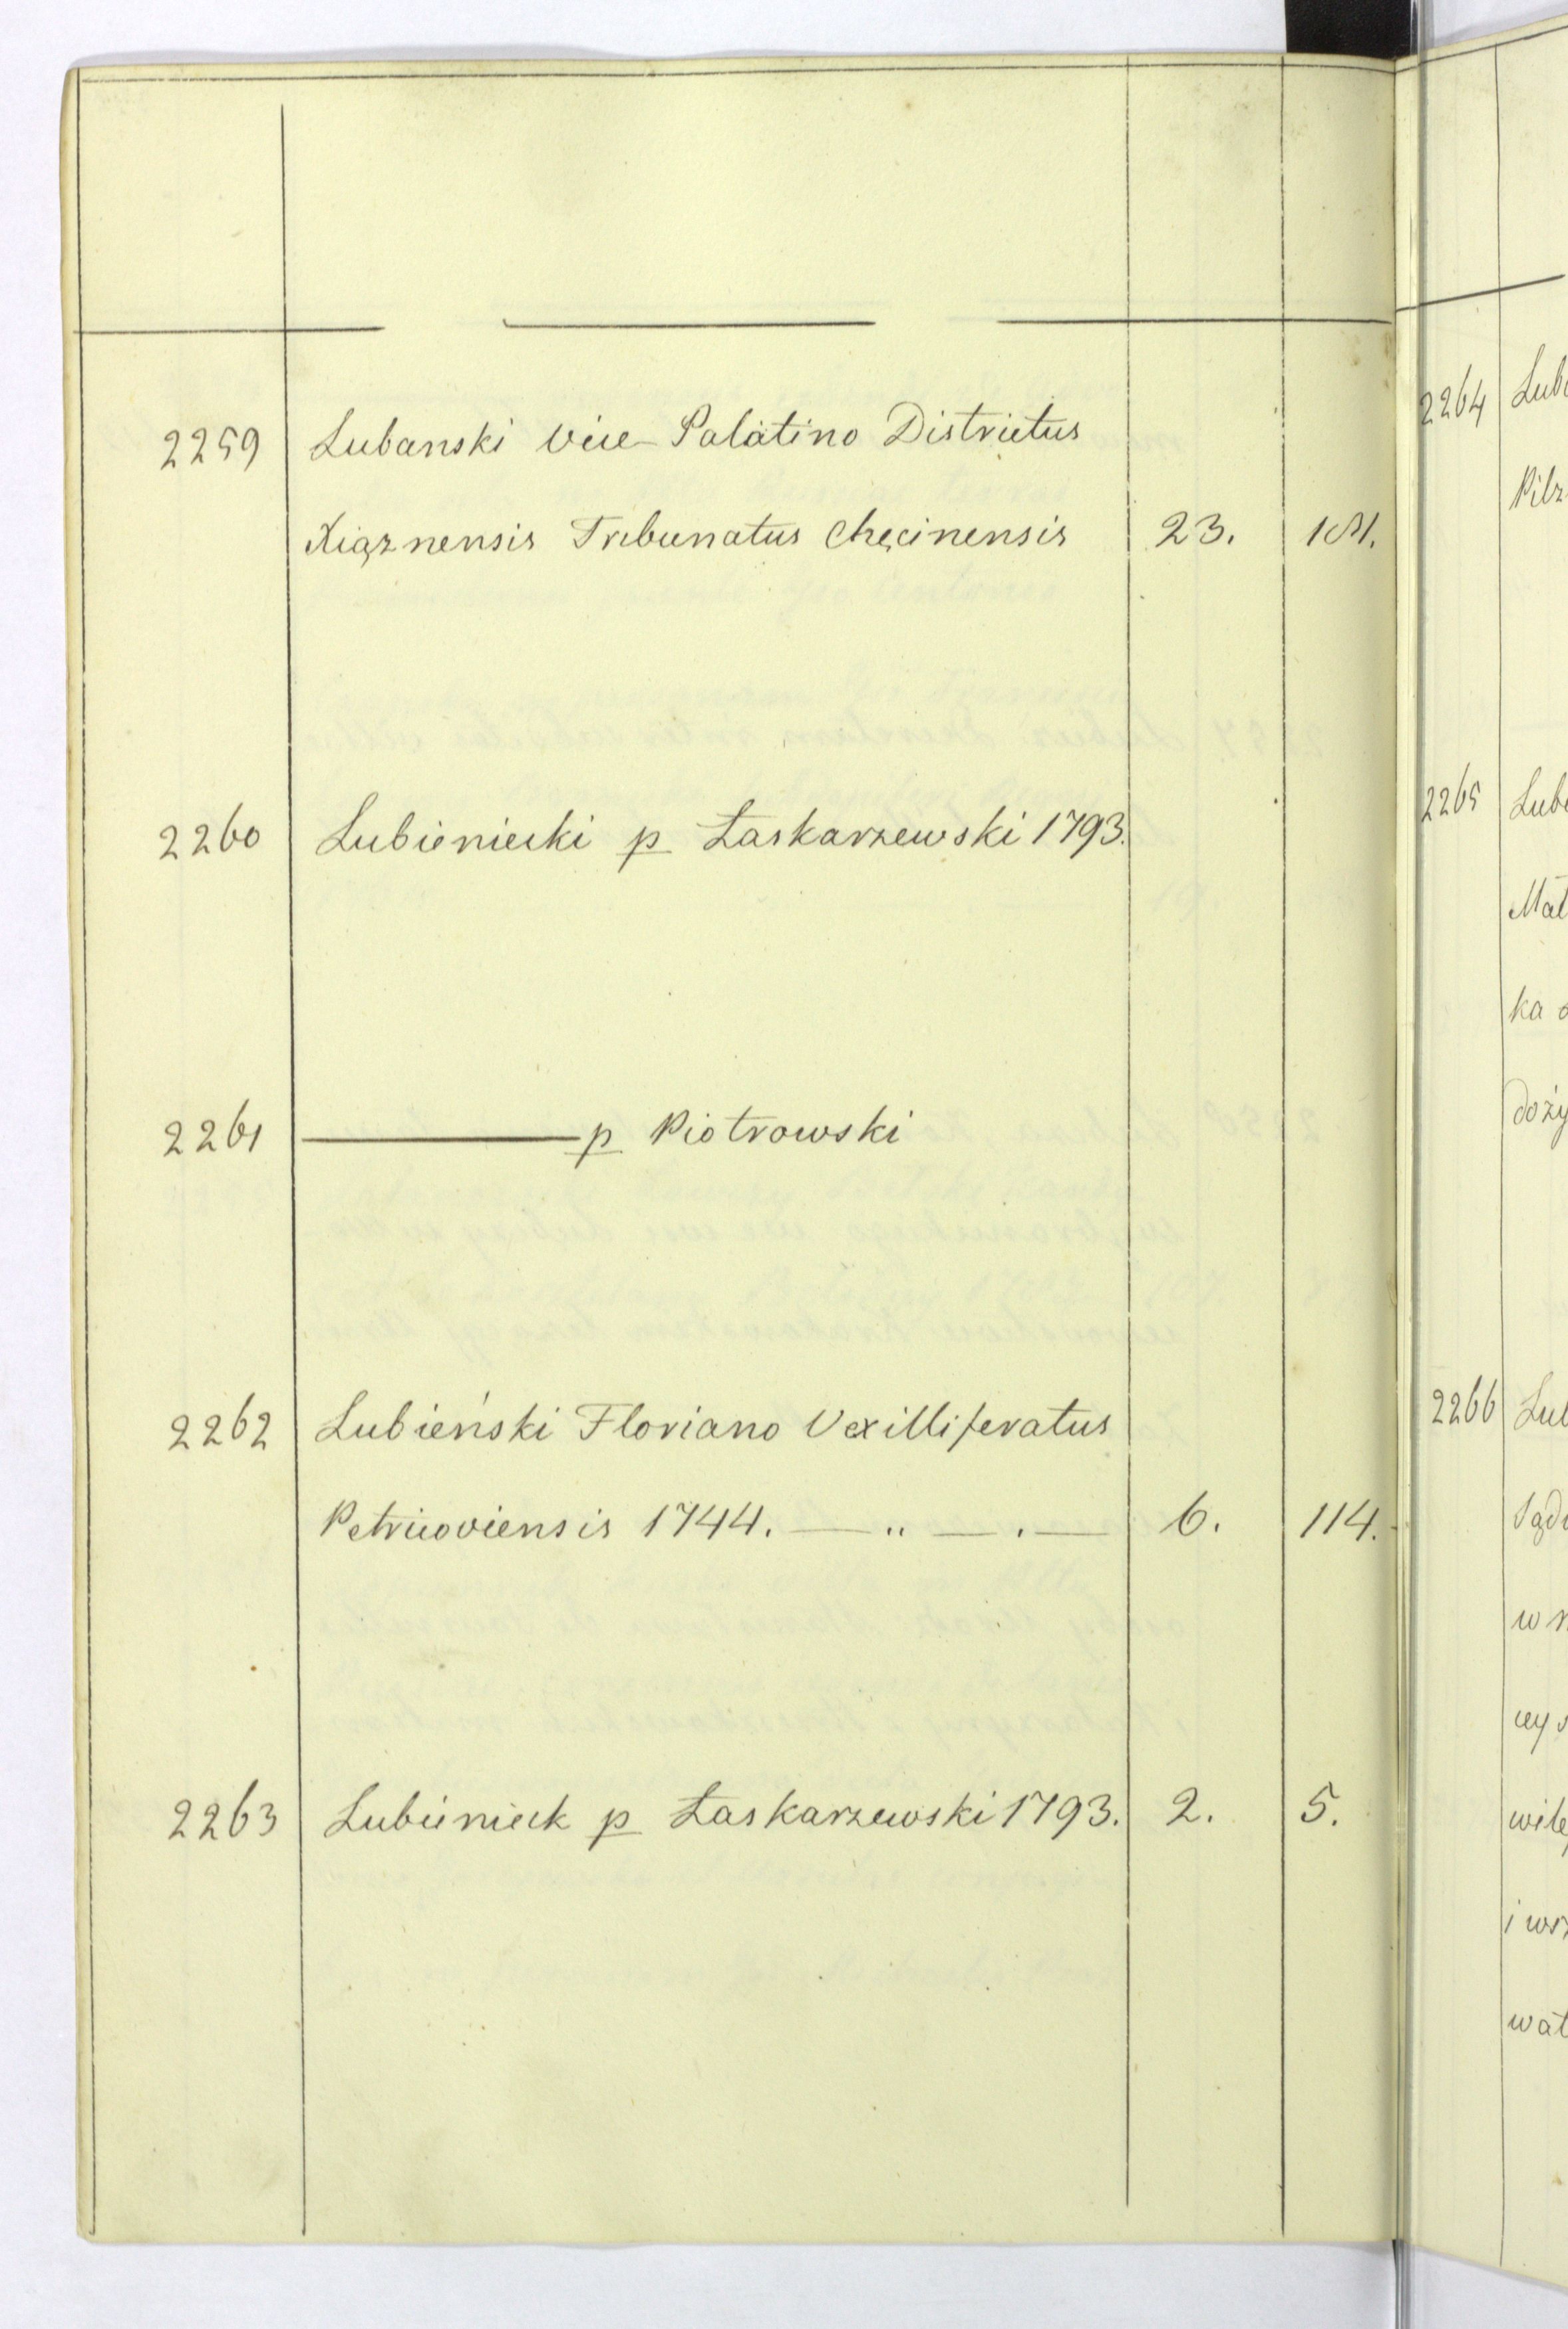 2259 Lubanski Vice-Palatino Districtus
Xiąznensis Tribunatus Chęcinensis 23. 181.
2260 Lubieniecki p Łaskarzewski 1793.
2261 ——— p Piotrowski
2262 Lubieński Floriano Vexilliferatus
Petricoviensis 1744. — „ — . — 6. 114.
2263 Lubienieck p Łaskarzewski 1793. 2. 5.
2264 Lub
Pilz
2265 Lub
Mat
ka
doży
2266 Lub
Sąd
w
cy
i wsz
wat